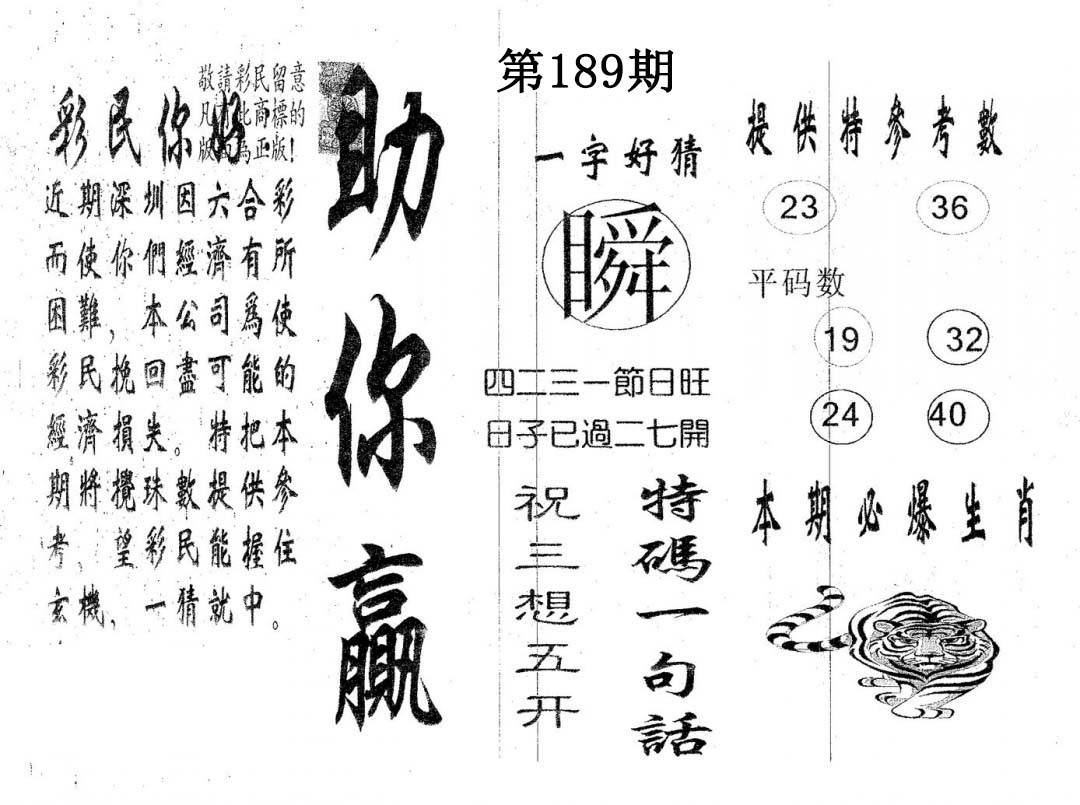 第189期
敬請彩民留意
凡 此商標的
版 為正版!
彩民你好
近期深圳因六合彩
而使你們經濟有所
困難,本公司爲使
彩民挽回盡可能的
經濟損失。特把本
期將攪珠數提供參
考,望彩民能握住
玄機,一猜就中。
助你贏
一字好猜
瞬
四二三一節日旺
日子已過二七開
特碼一句話
祝三想五开
提供特參考數
23 36
平码数
19 32
24 40
本期必爆生肖